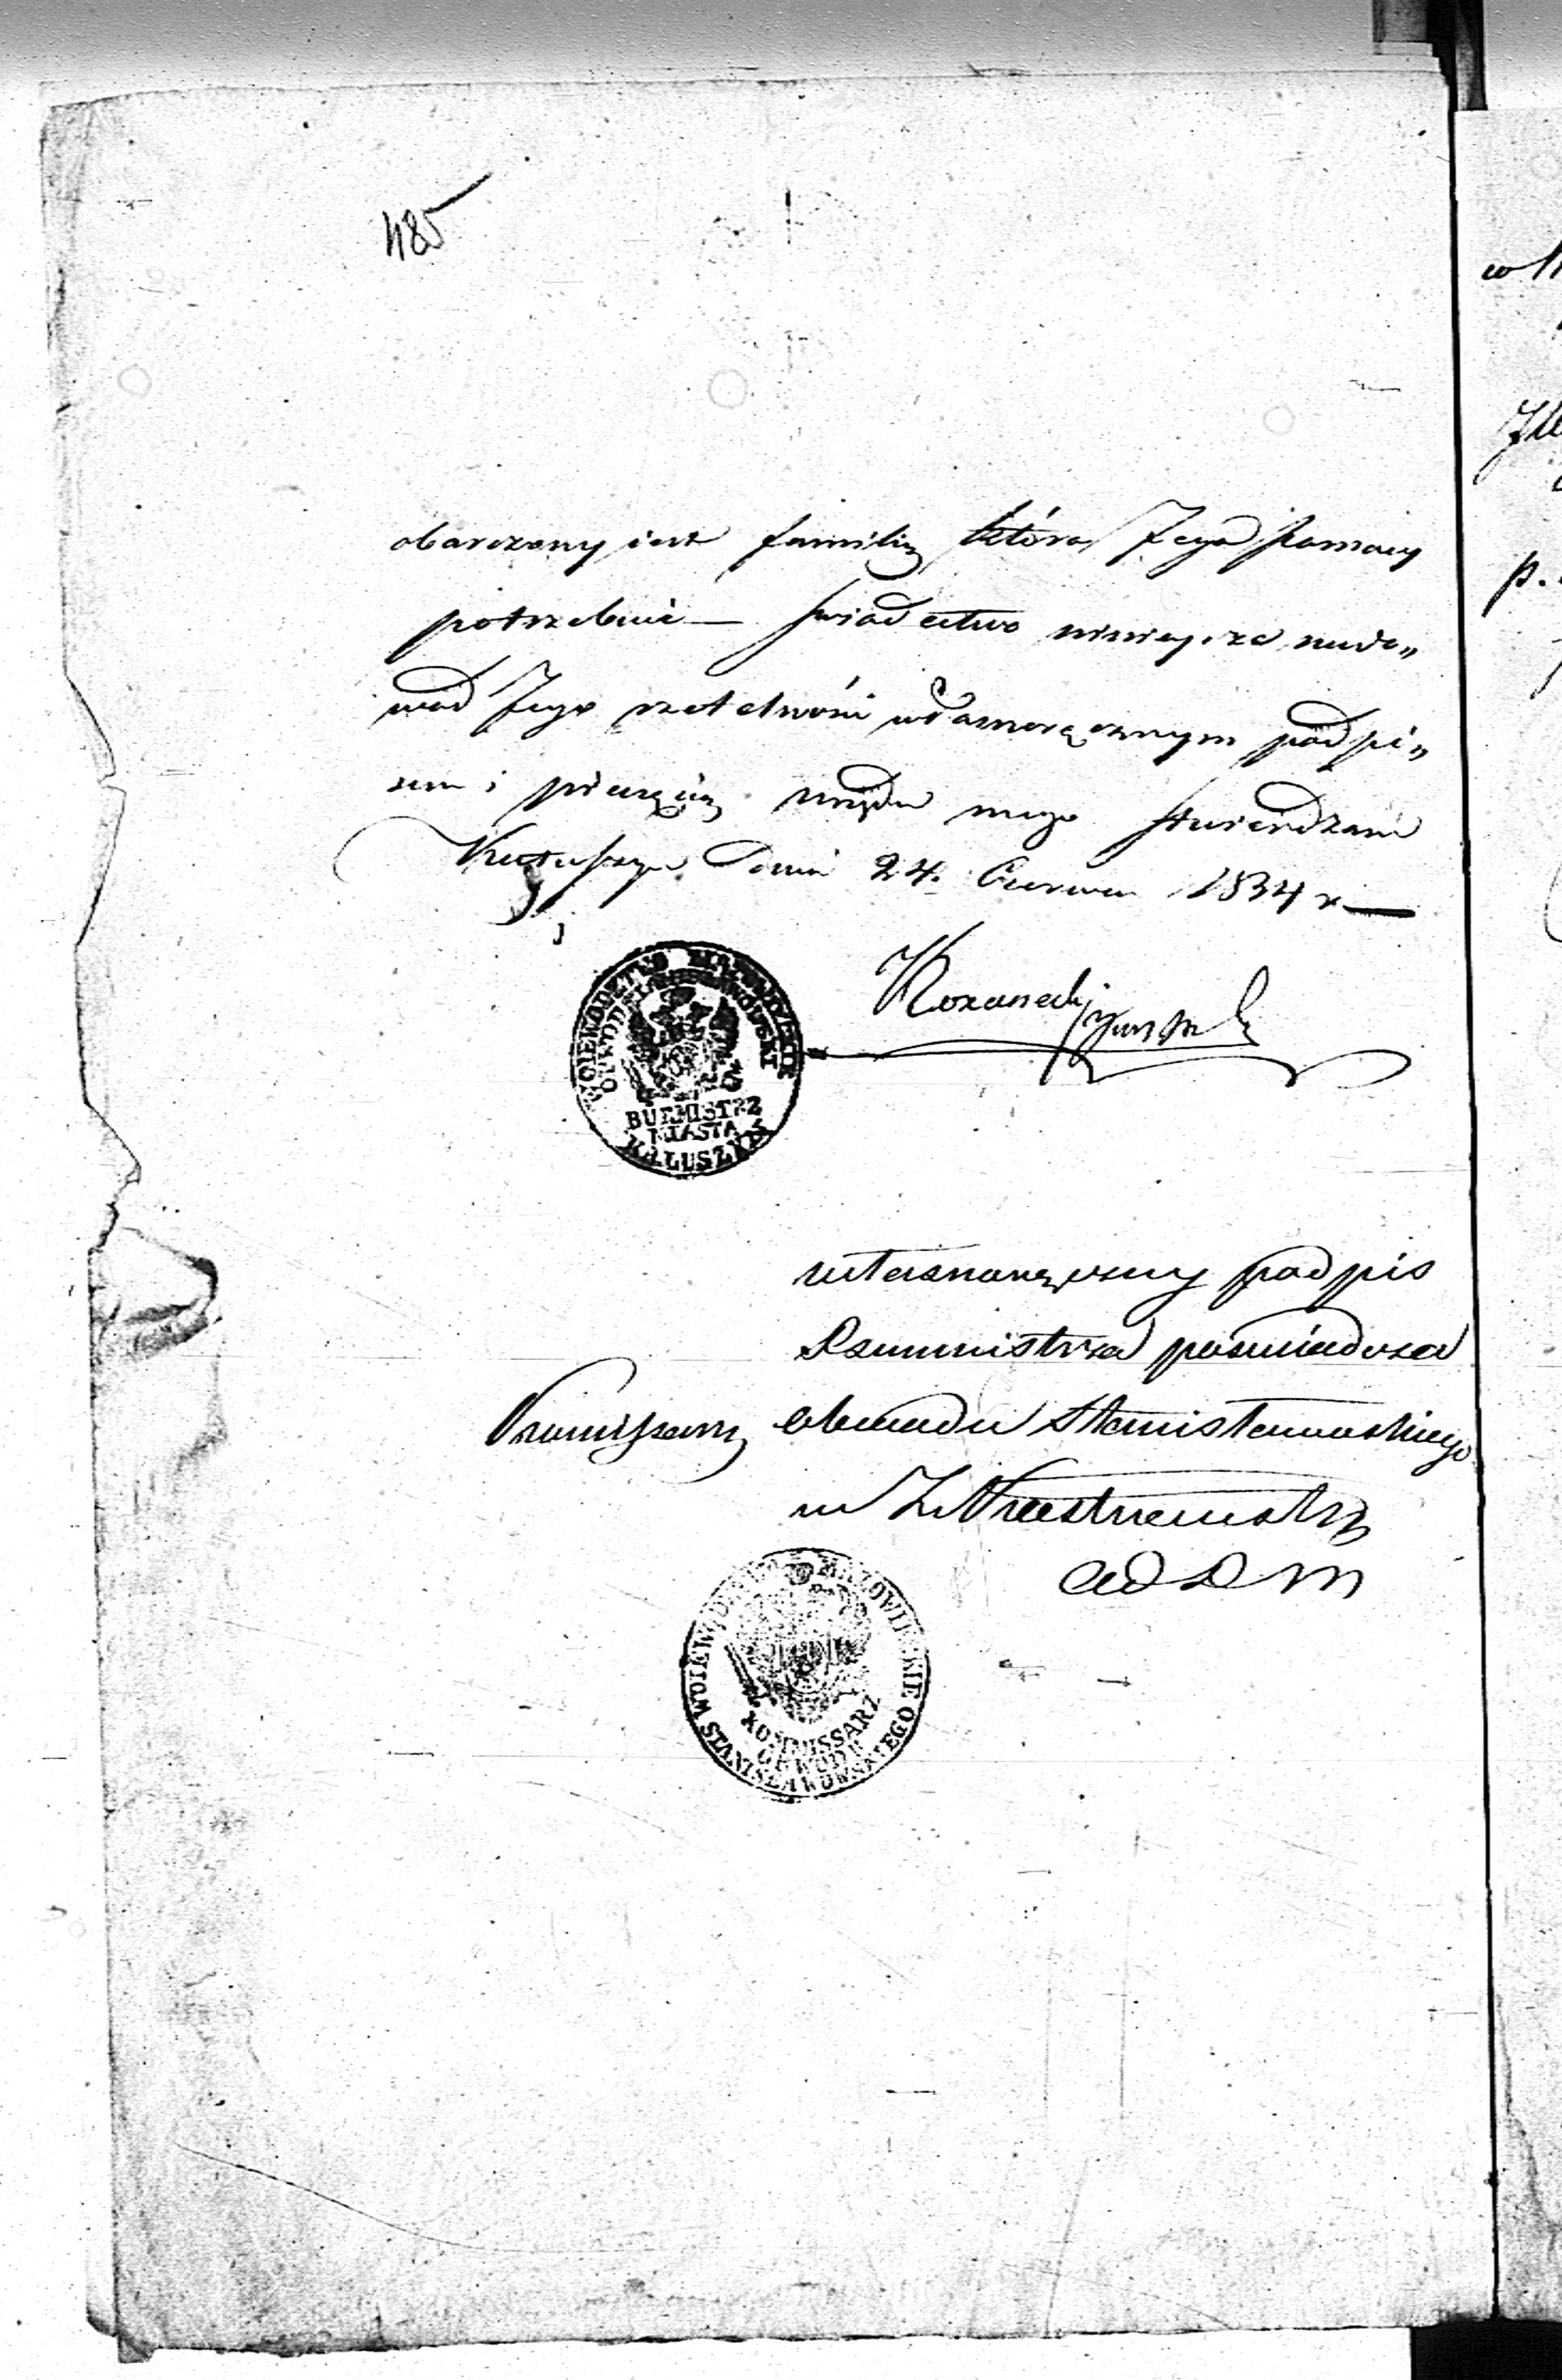 485
obarczony jest familią która Jego pomocy
potrzebuie — Swiadectwo ninieysze na do„
wod Jego rzetelności własnoręcznym podpi„
sem i pieczęcią urzędu mego stwierdzam
Kałuszyn Dnia 24. Czerwca 1834 r —
WOIEWODZTWO MAZOWIECKIE
OBWOD STANISŁAWOWSKI
BURMISTRZ
MIASTA
KAŁUSZYN
własnoręczny podpis
Burmistrza poswiadcza
Kommissarz Obwodu Stanisławowskiego
w Z
WOIEWODZTWO MAZOWIECKIE
KOMMISSARZ
OBWODU
STANISŁAWOWSKIEGO
w
p.